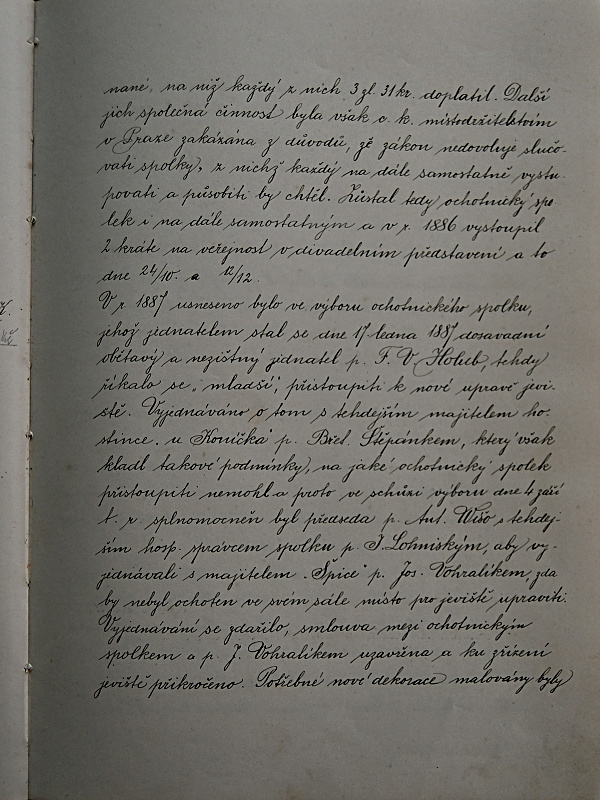 nané, na níž každý z nich 3 zl. 31 kr. doplatil. Další
jich společná činnost byla však c. k. místodržitelstvím
v Praze zakázána z důvodů, že zákon nedovoluje slučo-
vati spolky, z nichž každý na dále samostatně vystu-
povati a působiti by chtěl. Zůstal tedy ochotnický spo-
lek i na dále samostatným a v r. 1886 vystoupil
2 kráte na veřejnost v divadelním představení a to
dne 24/10. a 12/12.
V r. 1887 usneseno bylo ve výboru ochotnického spolku,
jehož jednatelem stal se dne 17 ledna 1887 dosavadní
obětavý a nezištný jednatel p. F. V. Holub, tehdy
říkalo se „mladší“, přistoupiti k nové úpravě jevi-
ště. Vyjednáváno o tom s tehdejším majitelem ho-
stince „u Koníčka“ p. Břet. Štěpánkem, který však
kladl takové podmínky, na jaké ochotnický spolek
přistoupiti nemohl a proto ve schůzi výboru dne 4 září
t. r. splnomocněn byl předseda p. Ant. Wišo s tehdej-
ším hosp. správcem spolku p. J. Lohniským, aby vy-
jednávali s majitelem „Špice“ p. Jos. Vohralíkem, zda
by nebyl ochoten ve svém sále místo pro jeviště upraviti.
Vyjednávání se zdařilo, smlouva mezi ochotnickým
spolkem a p. J. Vohralíkem uzavřna a ku zřízení
jeviště přikročeno. Potřebné nové dekorace malovány byly